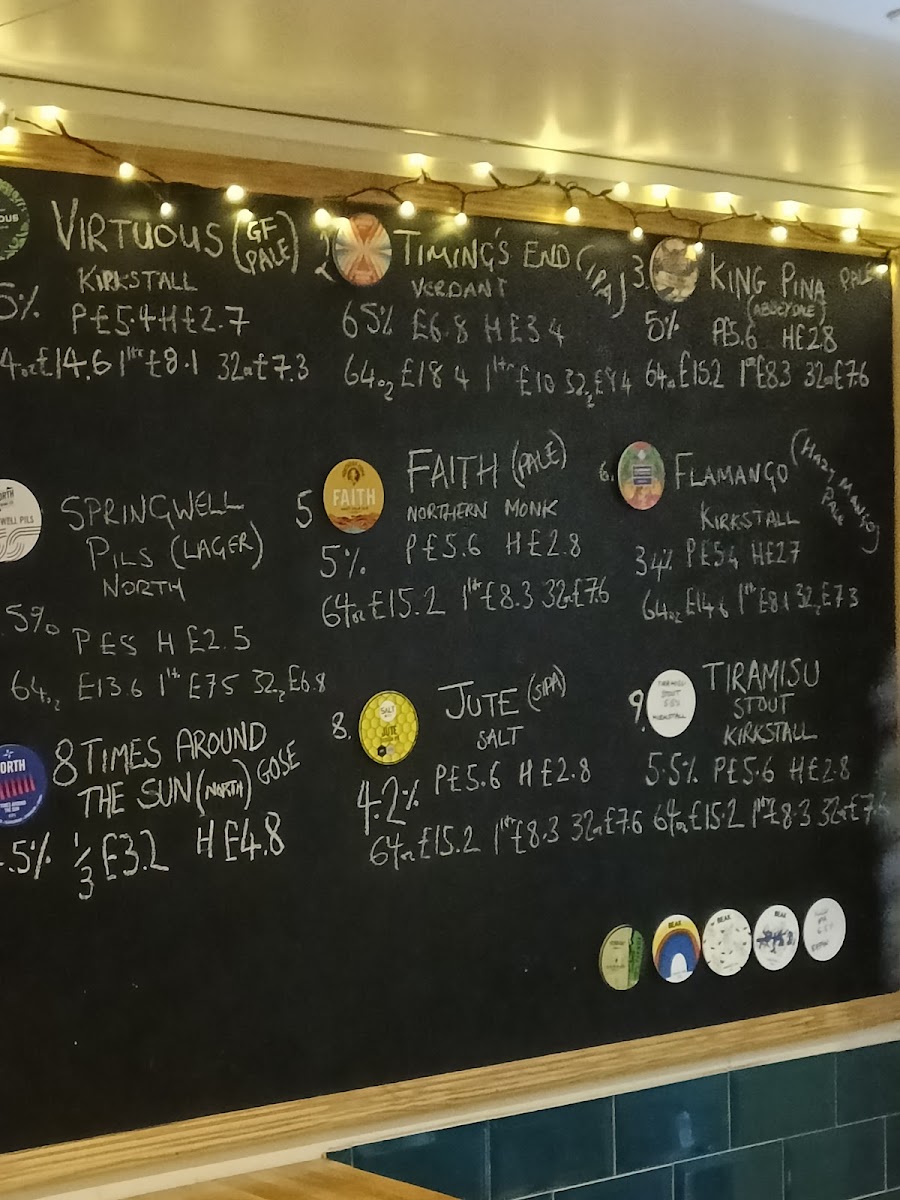 VIRTUOUS (GF PALE)
KIRKSTALL
5%
P£5.4 H£2.7
4oz £14.6 1ltr £8.1 32oz £7.3
2 TIMING'S END (IPA)
VERDANT
65% £6.8 H£3 4
64oz £18 4 1ltr £10 32oz £9 4
3. KING PINA PALE
(ABBEYDALE)
5% P£5.6 H£2.8
64oz £15.2 1ltr £8.3 32oz £7.6
SPRINGWELL
PILS (LAGER)
NORTH
5%
P£5 H£2.5
64oz £13.6 1ltr £7.5 32oz £6.8
5 FAITH FAITH (PALE)
NORTHERN MONK
5% P£5.6 H£2.8
64oz £15.2 1ltr £8.3 32oz £7.6
6. FLAMANGO (HAZY MANGO PALE)
KIRKSTALL
34% P£54 H£27
64oz £14.6 1ltr £8.1 32oz £7 3
NORTH
8 TIMES AROUND
THE SUN (NORTH) GOSE
.5% 1/3 £3.2 H£4.8
8. SALT JUTE JUTE (SIPA)
SALT
4.2% P£5.6 H£2.8
64oz £15.2 1ltr £8.3 32oz £7.6
9. TIRAMISU
STOUT
KIRKSTALL
5.5% P£5.6 H£2.8
64oz £15.2 1ltr £8.3 32oz £7.6
BEAK BEAK BEAK